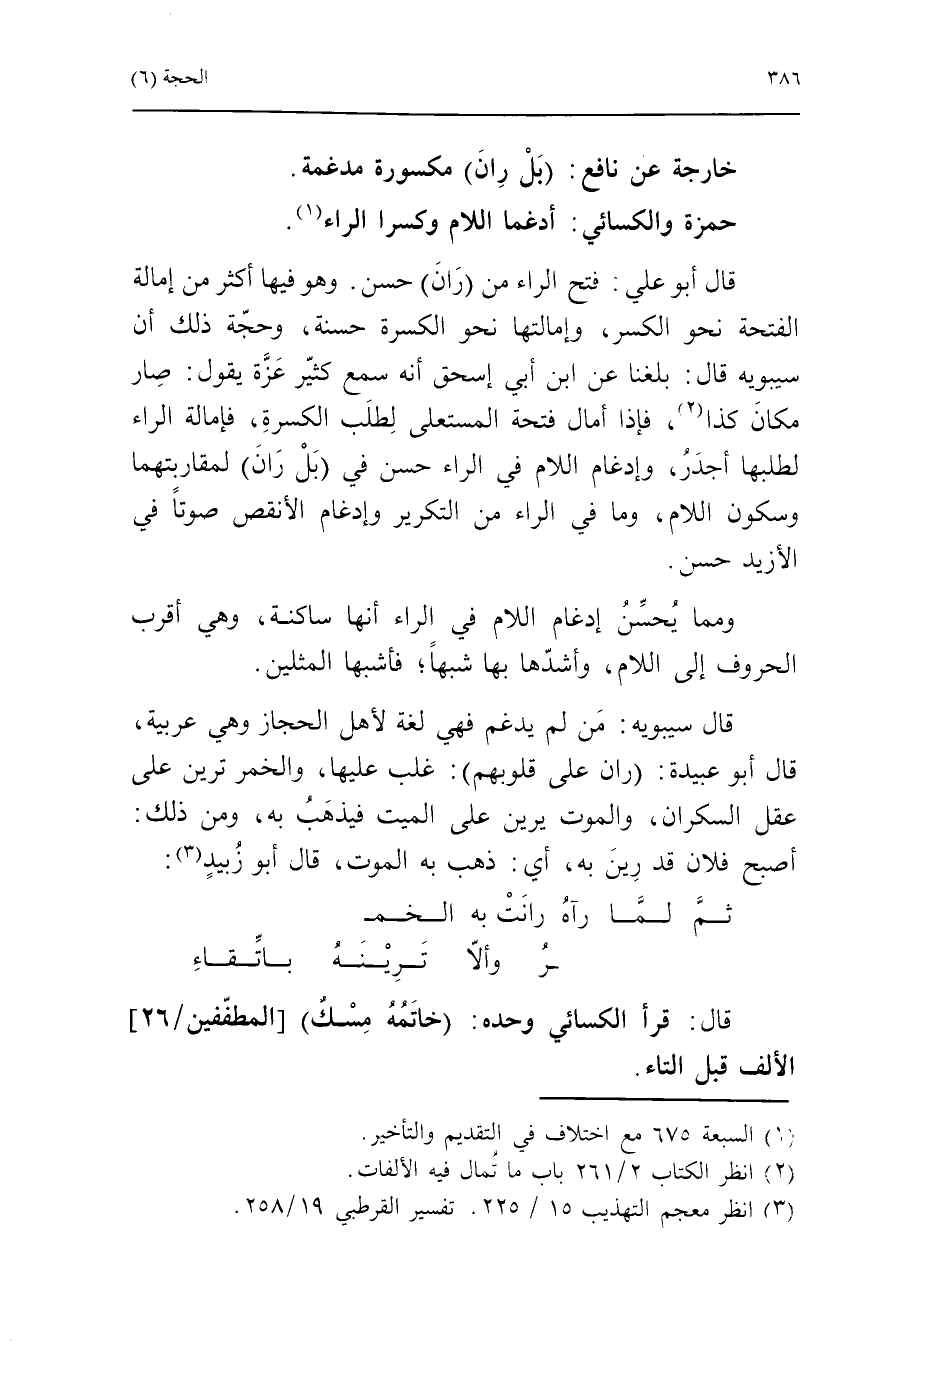 ٣٨٦ الحجة (٦)
خارجة عن نافع: (بَلْ رِانَ) مكسورة مدغمة.
حمزة والكسائي: أدغما اللام وكسرا الراء(١).
قال أبو علي: فتح الراء من (رَانَ) حسن. وهو فيها أكثر من إمالة
الفتحة نحو الكسر، وإمالتها نحو الكسرة حسنة، وحجّة ذلك أن
سيبويه قال: بلغنا عن ابن أبي إسحق أنه سمع كثيّر عَزَّة يقول: صِار
مكانَ كذا(٢)، فإذا أمال فتحة المستعلى لِطلَب الكسرةِ، فإمالة الراء
لطلبها أجدَرُ، وإدغام اللام في الراء حسن في (بَلْ رَانَ) لمقاربتهما
وسكون اللام، وما في الراء من التكرير وإدغام الأنقص صوتاً في
الأزيد حسن.
ومما يُحسِّنُ إدغام اللام في الراء أنها ساكنة، وهي أقرب
الحروف إلى اللام، وأشدّها بها شبهاً؛ فأشبها المثلين.
قال سيبويه: مَن لم يدغم فهي لغة لأهل الحجاز وهي عربية،
قال أبو عبيدة: (ران على قلوبهم): غلب عليها، والخمر ترين على
عقل السكران، والموت يرين على الميت فيذهَبُ به، ومن ذلك:
أصبح فلان قد رِينَ به، أي: ذهب به الموت، قال أبو زُبيدٍ(٣):
ثـمَّ لـمَّـا رآهُ رانَتْ به الـخـمـ
ـرُ وألاّ تَـرِيْـنَـهُ بـاتِّـقـاءِ
قال: قرأ الكسائي وحده: (خاتَمُهُ مِسْكٌ) [المطفّفين/٢٦]
الألف قبل التاء.
(١) السبعة ٦٧٥ مع اختلاف في التقديم والتأخير.
(٢) انظر الكتاب ٢/٢٦١ باب ما تُمال فيه الألفات.
(٣) انظر معجم التهذيب ١٥ / ٢٢٥. تفسير القرطبي ١٩/٢٥٨.